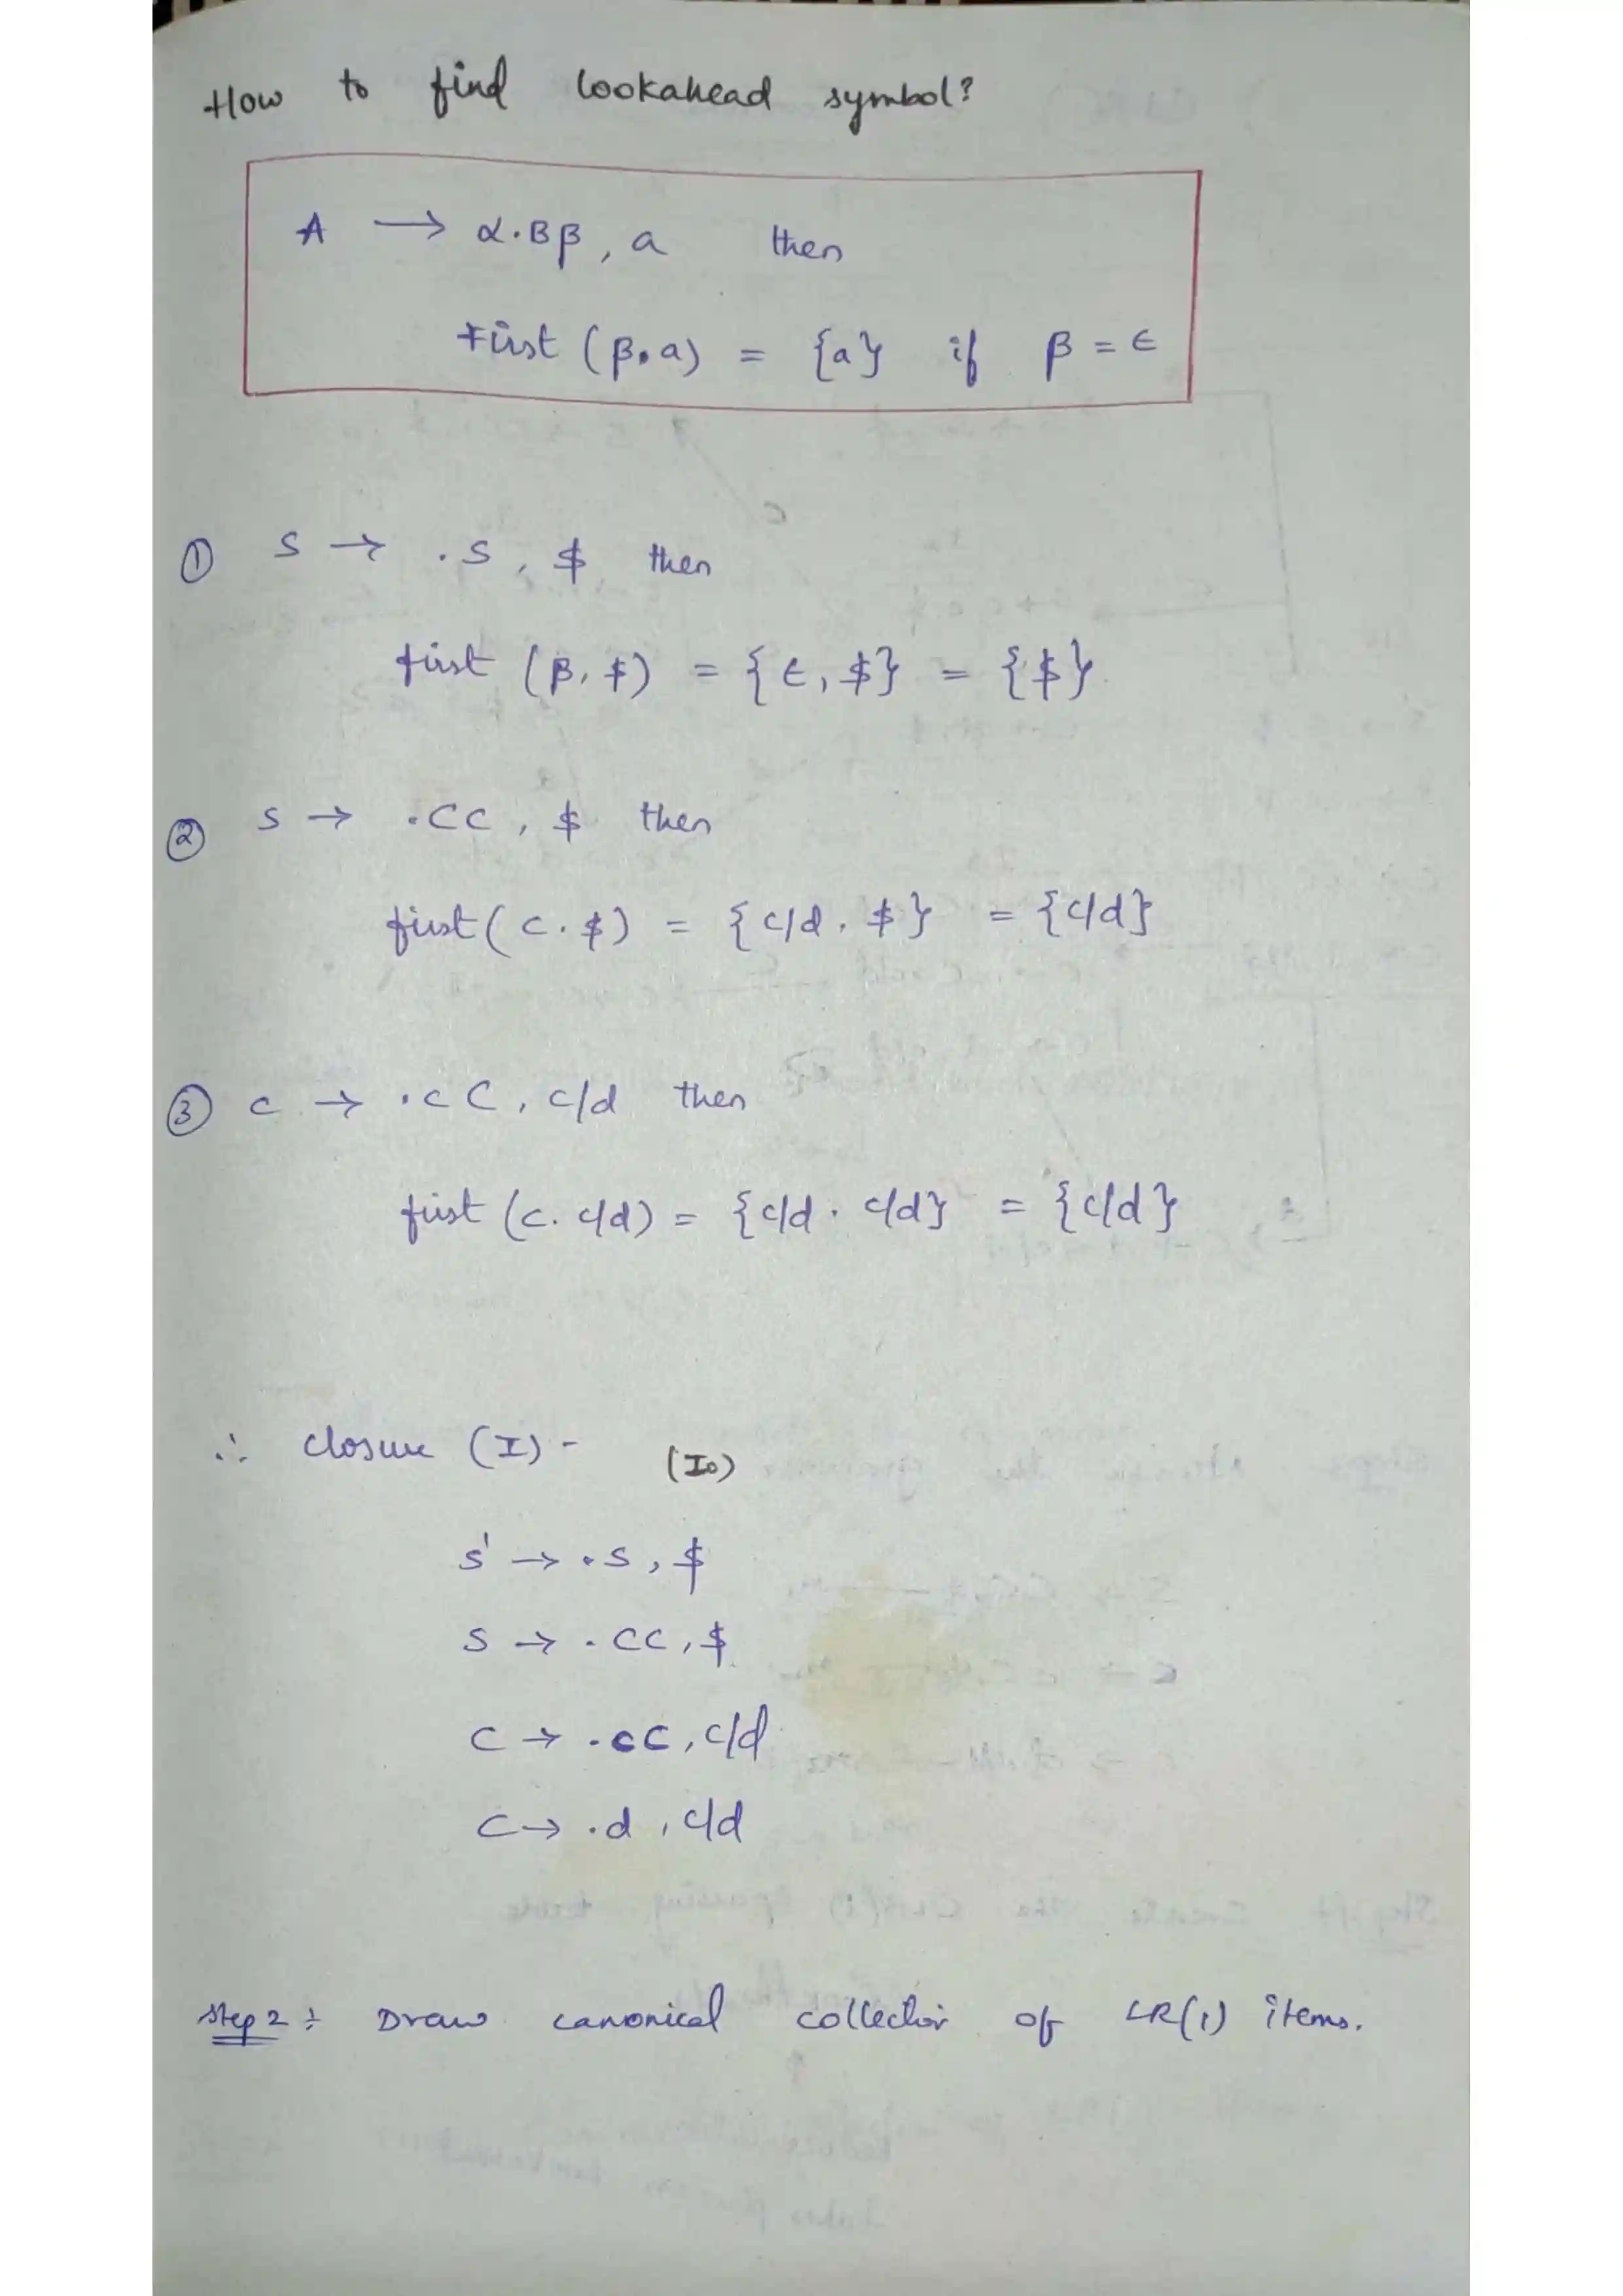 How to find lookahead symbol?
A → α.Bβ, a then
First (β.a) = {a} if β = ϵ
① S → .S, $ then
first (β, $) = {ϵ, $} = {$}
② S → .CC, $ then
first (C.$) = {c/d. $} = {c/d}
③ C → .cC, c/d then
first (c. c/d) = {c/d. c/d} = {c/d}
∴ closure (I) - (I0)
S' → .S, $
S → .CC, $
C → .cC, c/d
C → .d, c/d
Step 2 : Draw canonical collection of LR(1) items.